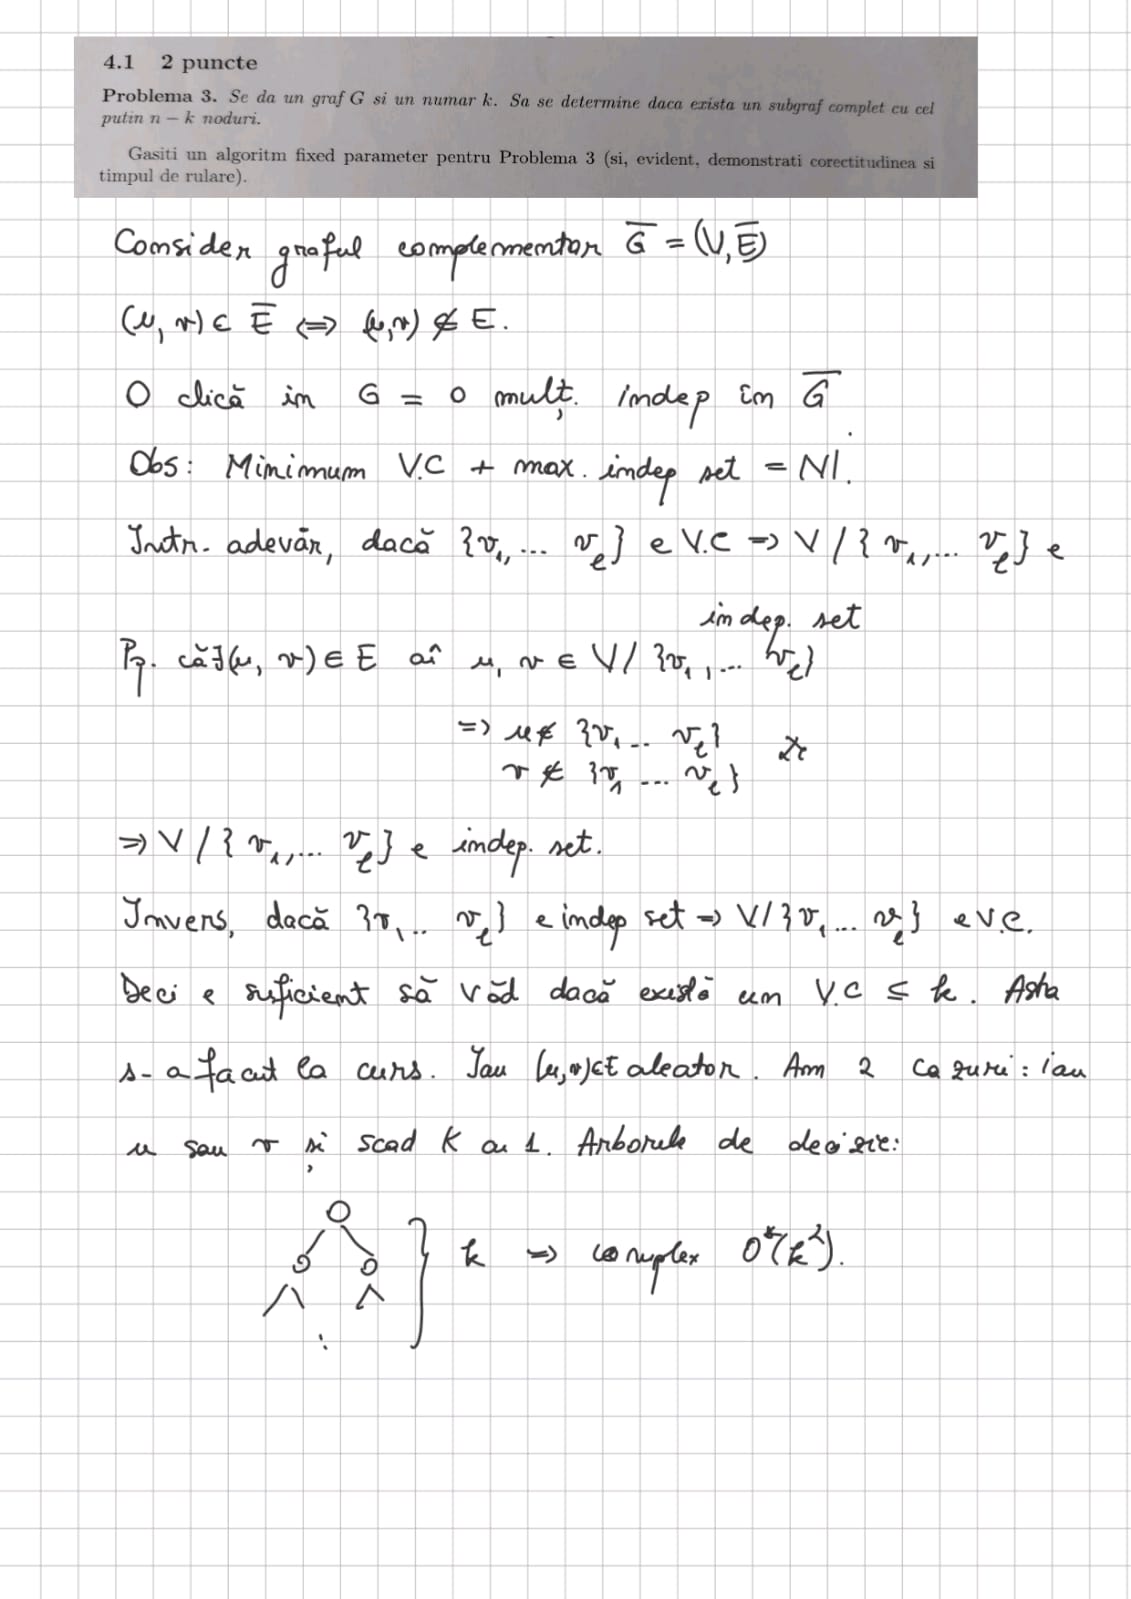 4.1 2 puncte
Problema 3. Se da un graf G si un numar k. Sa se determine daca exista un subgraf complet cu cel
putin n − k noduri.
Gasiti un algoritm fixed parameter pentru Problema 3 (si, evident, demonstrati corectitudinea si
timpul de rulare).
Consider graful complementar G̅ = (V, E̅)
(u, v) ∈ E̅ ⟺ (u,v) ∉ E.
O clică în G = o mulț. indep în G̅.
Obs: Minimum V.C + max. indep set = |V|.
Într-adevăr, dacă {v₁,... vₗ} e V.C => V / { v₁,... vₗ} e
indep. set
Pp. că ∃(u, v) ∈ E aî u, v ∈ V / {v₁,... vₗ}
=> u ∉ {v₁.. vₗ}
v ∉ {v₁ ... vₗ}
=> V / { v₁,... vₗ} e indep. set.
Invers, dacă {v₁.. vₗ} e indep set => V/{v₁... vₗ} e V.C.
Deci e suficient să văd dacă există un V.C ≤ k. Asta
s-a facut la curs. Iau (u,v)∈E aleator. Am 2 cazuri: iau
u sau v și scad K cu 1. Arborele de decizie:
} k => complex O*(k²).